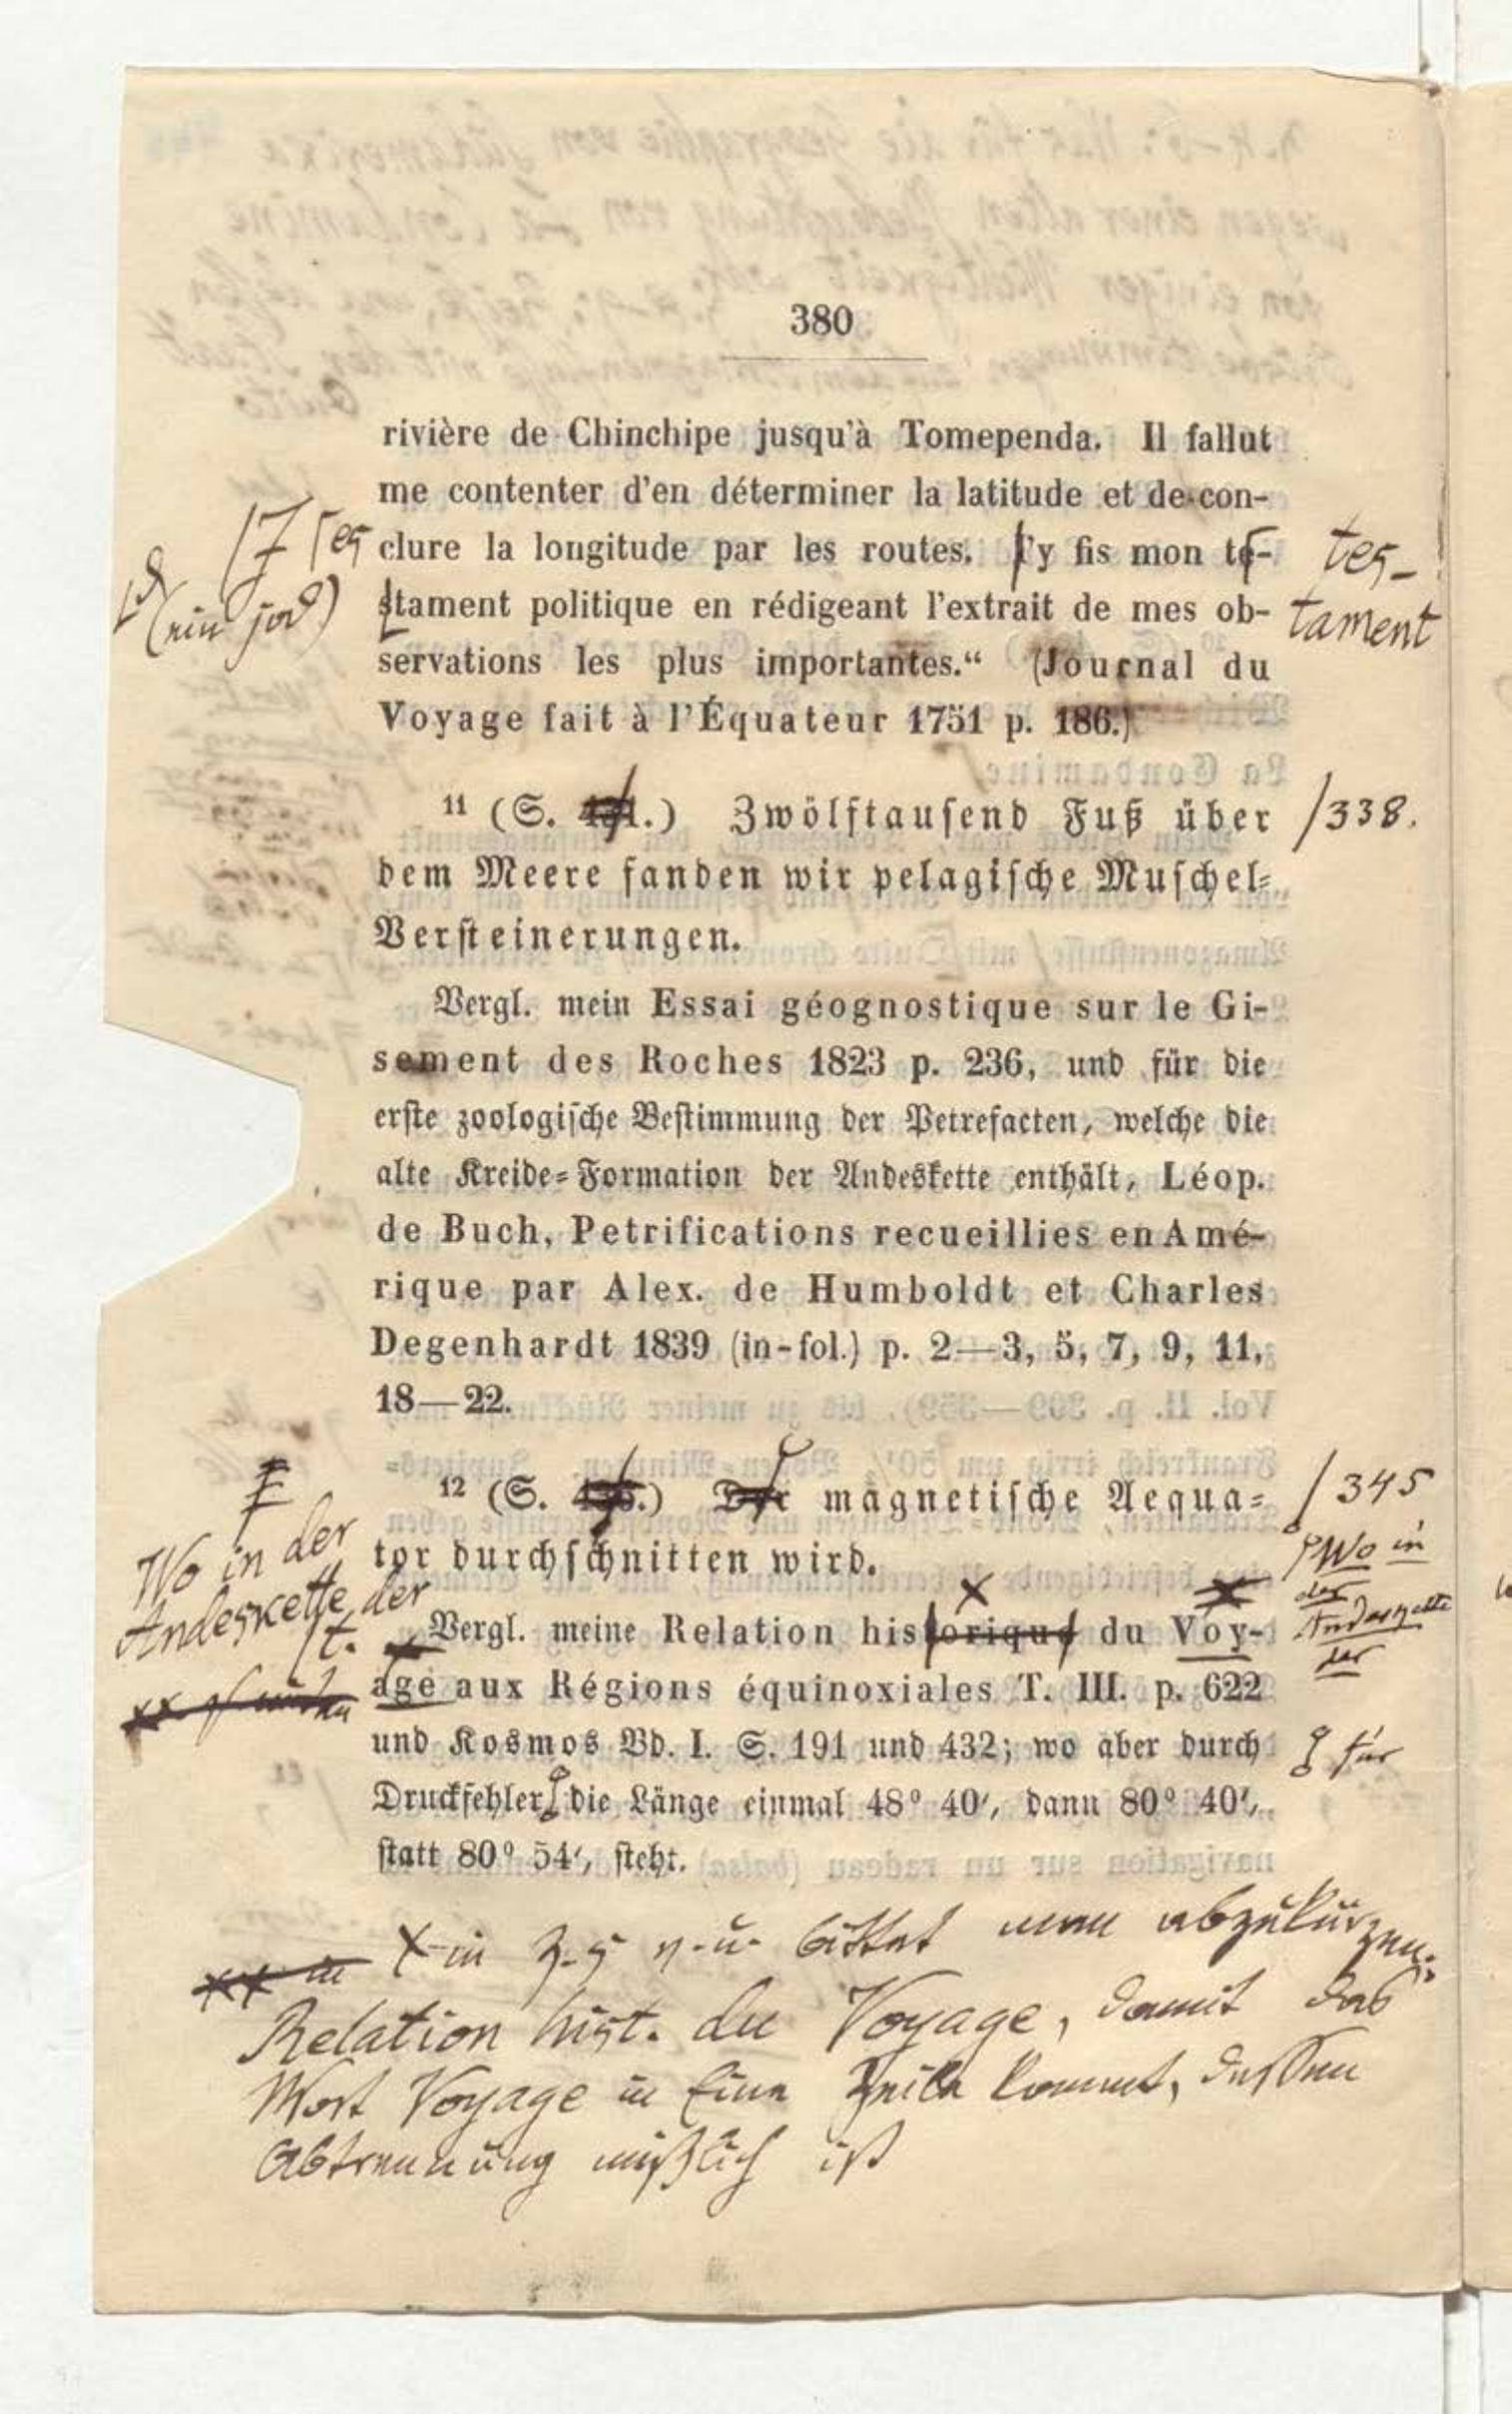 380
rivière de Chinchipe jusqu'à Tomependa. Il fallut
me contenter d'en déterminer la latitude et de con-
clure la longitude par les routes. J'y fis mon te-
stament politique en rédigeant l'extrait de mes ob-
servations les plus importantes.“ (Journal du
Voyage fait à l'Équateur 1751 p. 186.)
tes-
tament
11 (S. .) Zwölftausend Fuß über
/338.
dem Meere fanden wir pelagische Muschel-
Versteinerungen.
Vergl. mein Essai géognostique sur le Gi-
sement des Roches 1823 p. 236, und für die
erste zoologische Bestimmung der Petrefacten, welche die
alte Kreide-Formation der Andeskette enthält, Léop.
de Buch, Petrifications recueillies en Amé-
rique par Alex. de Humboldt et Charles
Degenhardt 1839 (in-fol.) p. 2—3, 5, 7, 9, 11,
18—22.
12 (S. .) Der magnetische Aequa-
/345
tor durchschnitten wird.
Wo in der
Andeskette der
/t.
Wo in
der
Andeskette
der
Vergl. meine Relation historique du Voy-
age aux Régions équinoxiales T. III. p. 622
und Kosmos Bd. I. S. 191 und 432; wo aber durch
Druckfehler die Länge einmal 48° 40′, dann 80° 40′,
für
statt 80° 54′, steht.
X in Z. 5 v. u. bittet man abzukürzen:
Relation hist. du Voyage, damit das
Wort Voyage in Eine Zeile kommt, dessen
Abtrennung mißlich ist